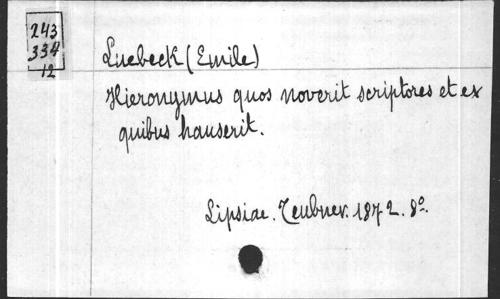 243
334
12
Luebeck (Emile)
Hieronymus quos noverit scriptores et ex
quibus hauserit.
Lipsiae. Teubner. 1872. 8°.